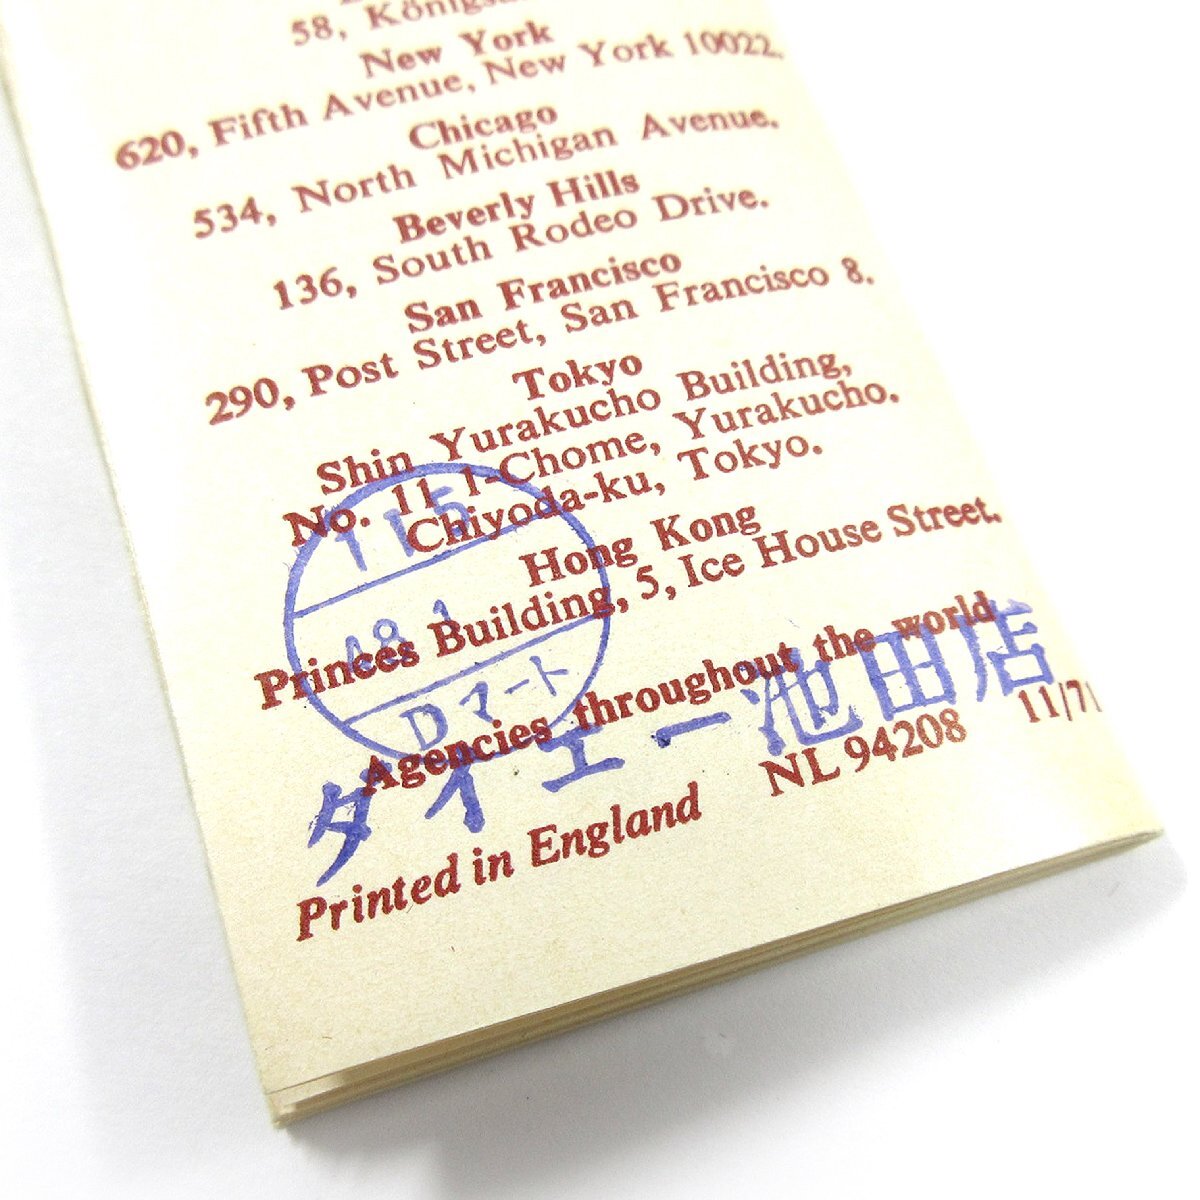 58,
New York
620, Fifth Avenue, New York 10022.
Chicago
534, North Michigan Avenue.
Beverly Hills
136, South Rodeo Drive.
San Francisco
290, Post Street, San Francisco 8.
Tokyo
Shin Yurakucho Building,
No. 11 1-Chome, Yurakucho.
Chiyoda-ku, Tokyo.
Hong Kong
Princes Building, 5, Ice House Street.
Agencies throughout the world
Printed in England NL 94208 11/71
115
Dマート
ダイエー池田店